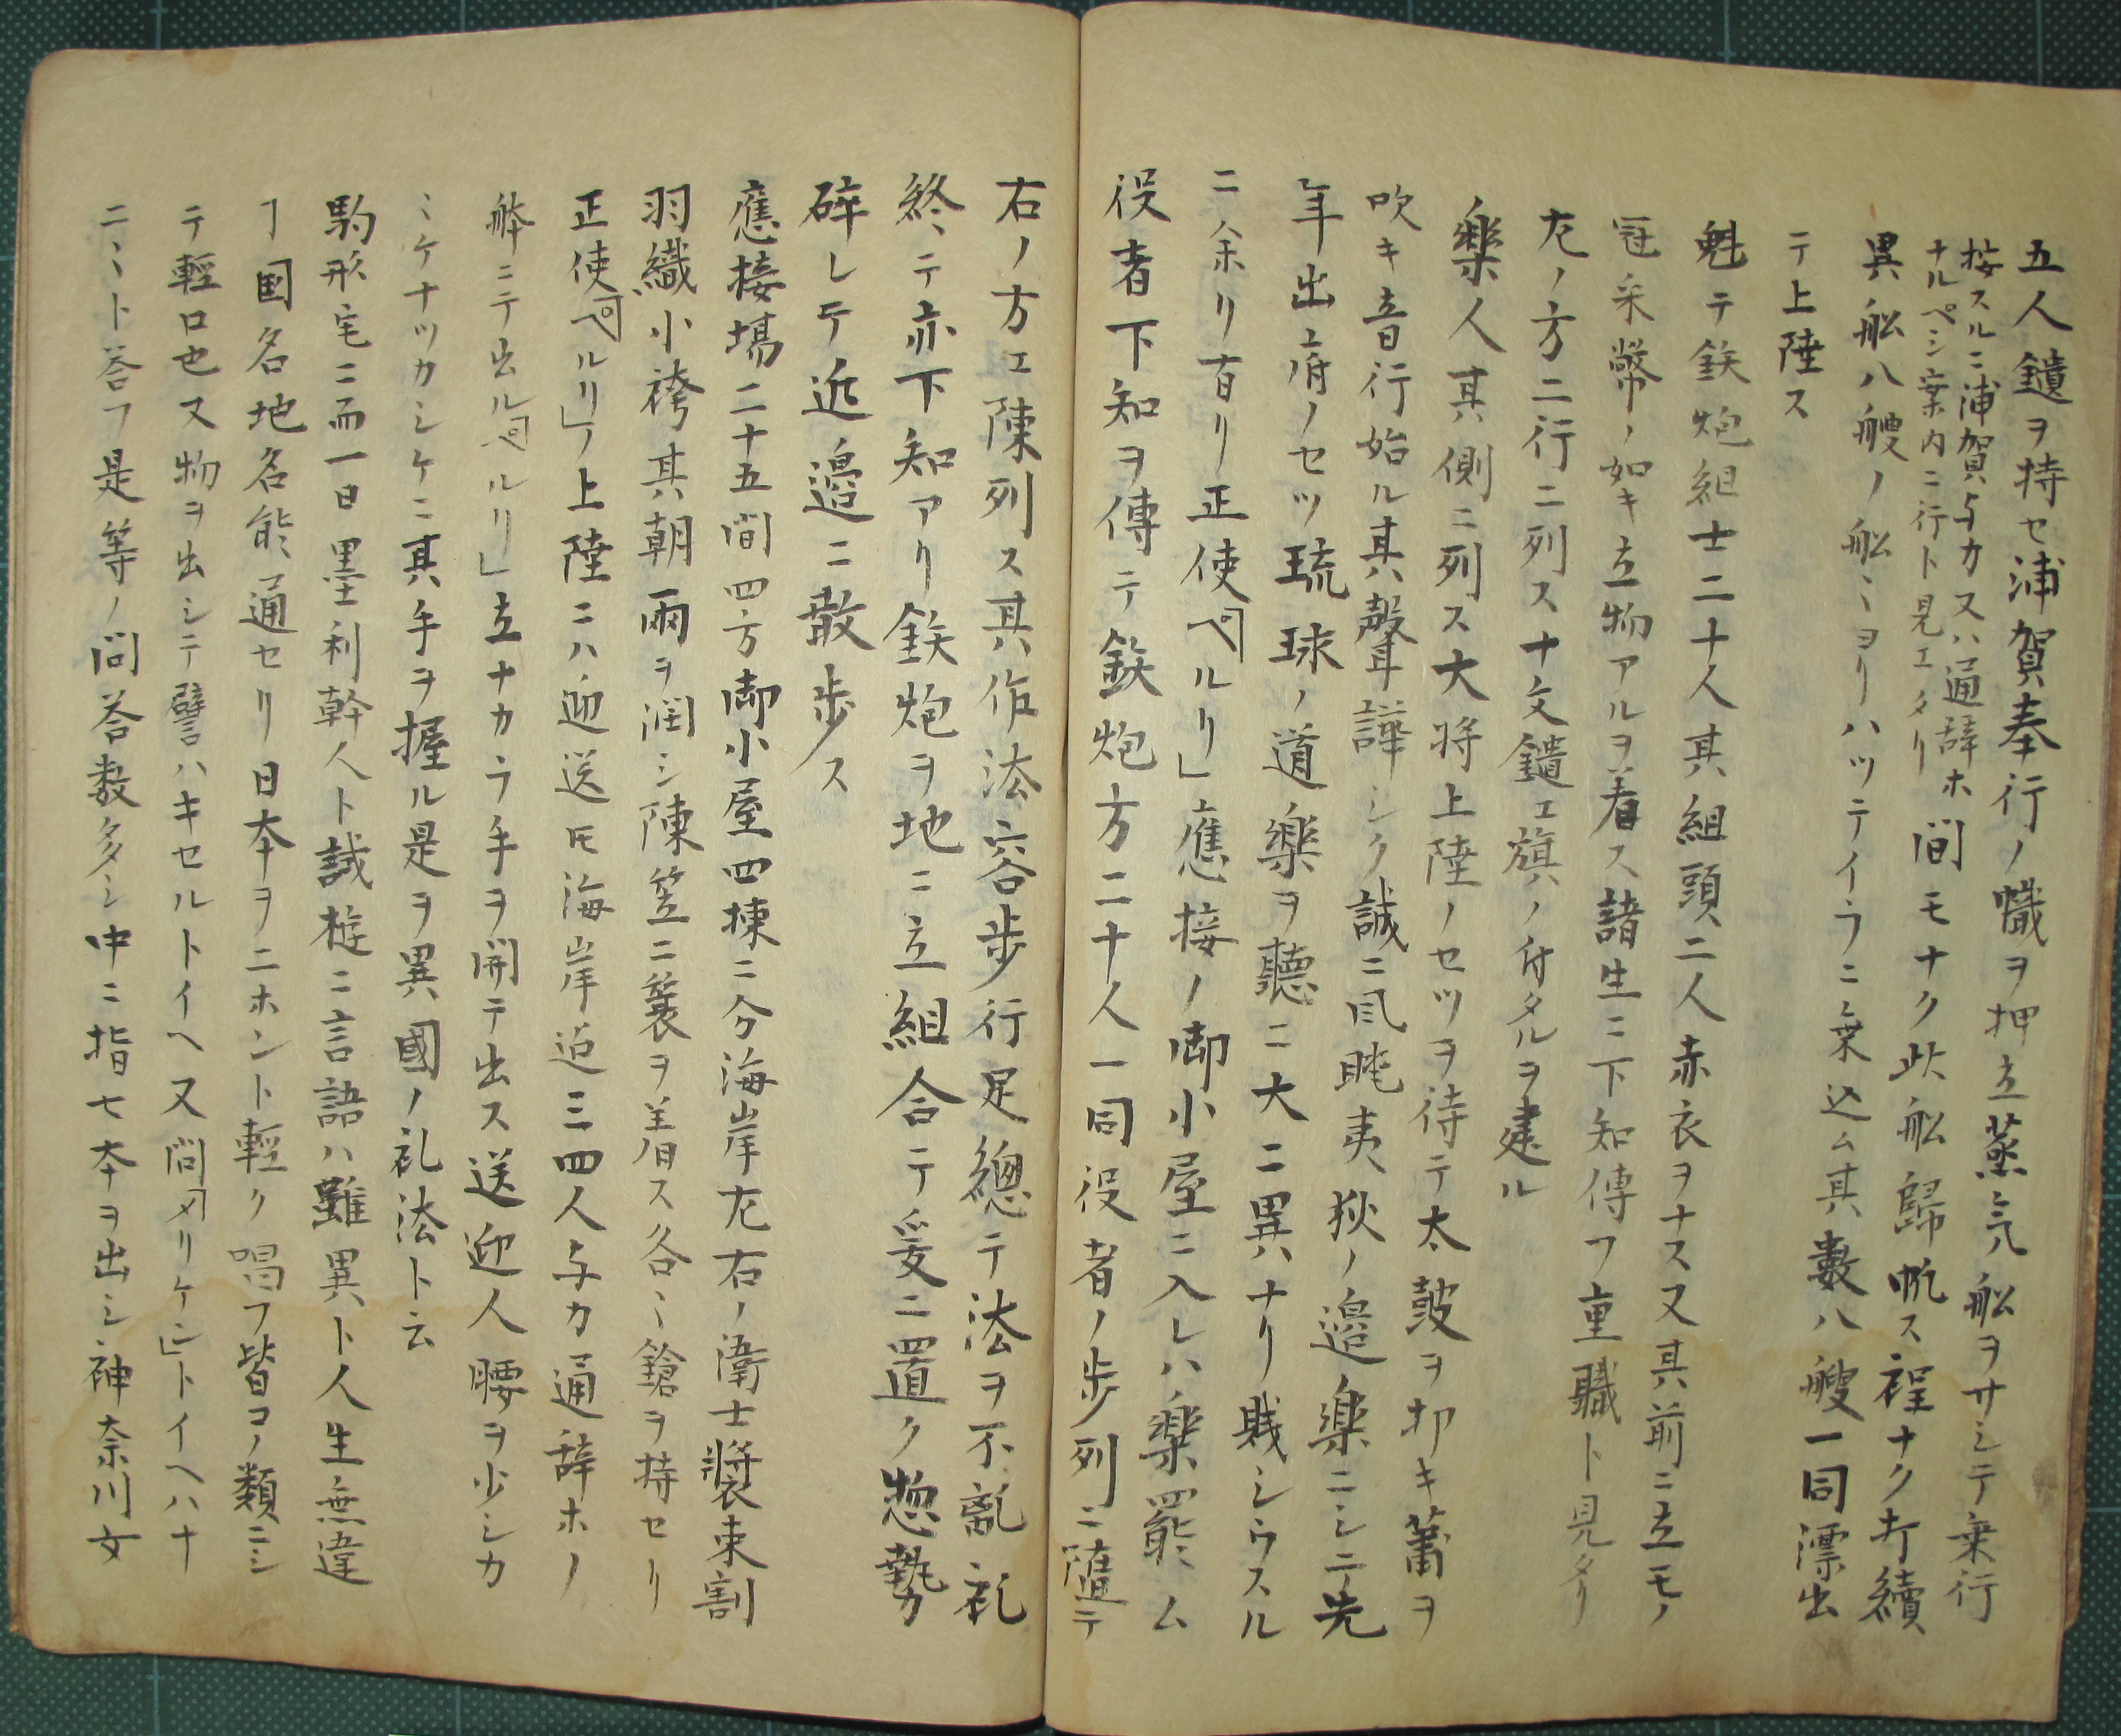 五人鑓ヲ持セ浦賀奉行ノ幟ヲ押立蒸気船ヲサシテ乗行
按スルニ浦賀与力又ハ通辞ホ
ナルペシ案内ニ行ト見エタリ
間モナク此船歸帆ス程ナク打續
異船八艘ノ船ミヨリハツテイラニ乗込ム其數八艘一同漂出
テ上陸ス
魁テ鉄炮組士二十人其組頭二人赤衣ヲナス又其前ニ立モノ
冠采幣ノ如キ立物アルヲ着ス諸生ニ下知傳フ重職ト見タリ
左ノ方二行ニ列ス十文鑓エ旗ノ付タルヲ建ル
樂人其側ニ列ス大将上陸ノセツヲ待テ太皷ヲ抑キ簫ヲ
吹キ音行始ル其聲譁シク誠ニ風眺夷狄ノ邉樂ニシテ先
年出府ノセツ琉球ノ道樂ヲ聽ニ大ニ異ナリ賎シウスル
ニ余リ有リ正使ペルリ」應接ノ御小屋ニ入レハ樂罷ム
役者下知ヲ傳テ鉄炮方二十人一同役者ノ歩列ニ随テ
右ノ方エ陳列ス其作法容歩行足總テ法ヲ不乱礼
終テ亦下知アリ鉄炮ヲ地ニ立組合テ爰ニ置ク惣勢
碎レテ近邉ニ散歩ス
應接場二十五間四方御小屋四棟ニ分海岸左右ノ衛士裝束割
羽織小袴其朝雨ヲ潤シ陳笠ニ簑ヲ着ス各ミ鎗ヲ持セリ
正使ペルリ」ノ上陸ニハ迎送モ海岸迄三四人与力通辞ホノ
舩ニテ出ルペルリ」立ナカラ手ヲ開テ出ス送迎人腰ヲ少シカ
ミケナツカシケニ其手ヲ握ル是ヲ異國ノ礼法ト云
駒形宅ニ而一日墨利幹人ト誠遊ニ言語ハ雖異ト人生無違
ヿ国名地名能通セリ日本ヲニホント輕ク唱フ皆コノ類ニシ
テ輕口也又物ヲ出シテ譬ハキセルトイヘ又問メリケン」トイヘハナ
ニミト答フ是等ノ問答数多シ中ニ指七本ヲ出シ神奈川女